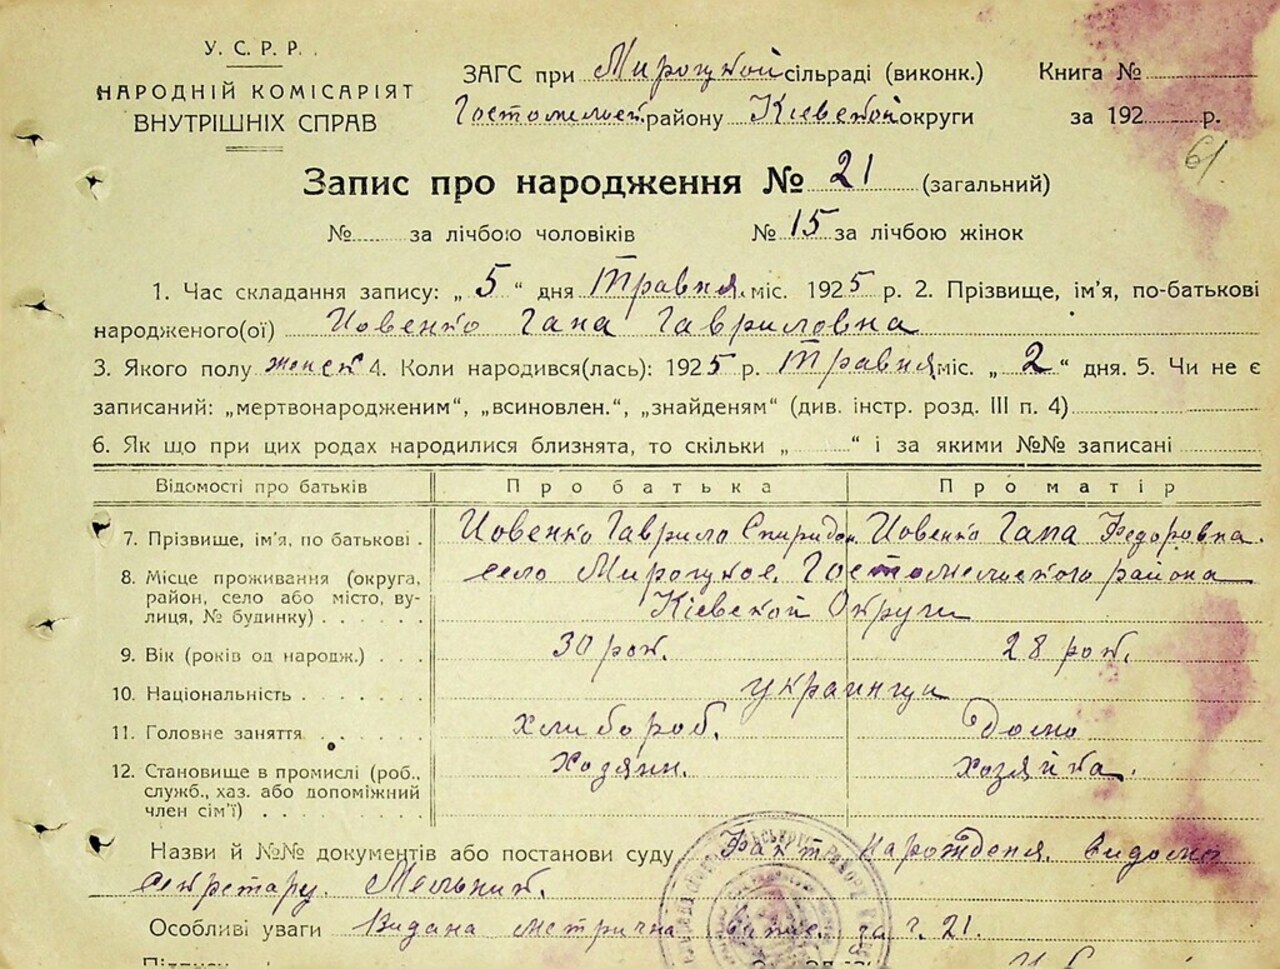 У.С.Р.Р.
НАРОДНІЙ КОМІСАРІЯТ
ВНУТРІШНІХ СПРАВ
ЗАГС при Мироцкой сільраді (виконк.)
Гостомельск району Кіевской округи
Книга №
за 192 р.
61
Запис про народження № 21 (загальний)
№ за лічбою чоловіків № 15 за лічбою жінок
1. Час складання запису: „ 5 “ дня Травня міс. 1925 р. 2. Прізвище, ім’я, по-батькові
народженого(ої) Йовенко Гана Гавриловна
3. Якого полу женск 4. Коли народився(лась): 1925 р. Травня міс. „ 2 “ дня. 5. Чи не є
записаний: „мертвонародженим“, „всиновлен.“, „знайденям“ (див. інстр. розд. III п. 4)
6. Як що при цих родах народилися близнята, то скільки „ “ і за якими №№ записані
Відомості про батьків Про батька Про матір
7. Прізвище, ім’я, по батькові . Йовенко Гаврило Спиридон Йовенко Гана Федоровна.
8. Місце проживання (округа, район, село або місто, вулиця, № будинку) село Мироцкое, Гостомельского района
Кіевской Округи
9. Вік (років од народж.) 30 рок. 28 рок.
10. Національність украинци
11. Головне заняття хлибороб. дома
12. Становище в промислі (роб., служб., хаз. або допоміжний член сім’ї) Хозяин. хозяйка.
Назви й №№ документів або постанови суду Факт нарождения видомо
секретару. Мельник.
Особливі уваги Видана метрична випис. за ч. 21.